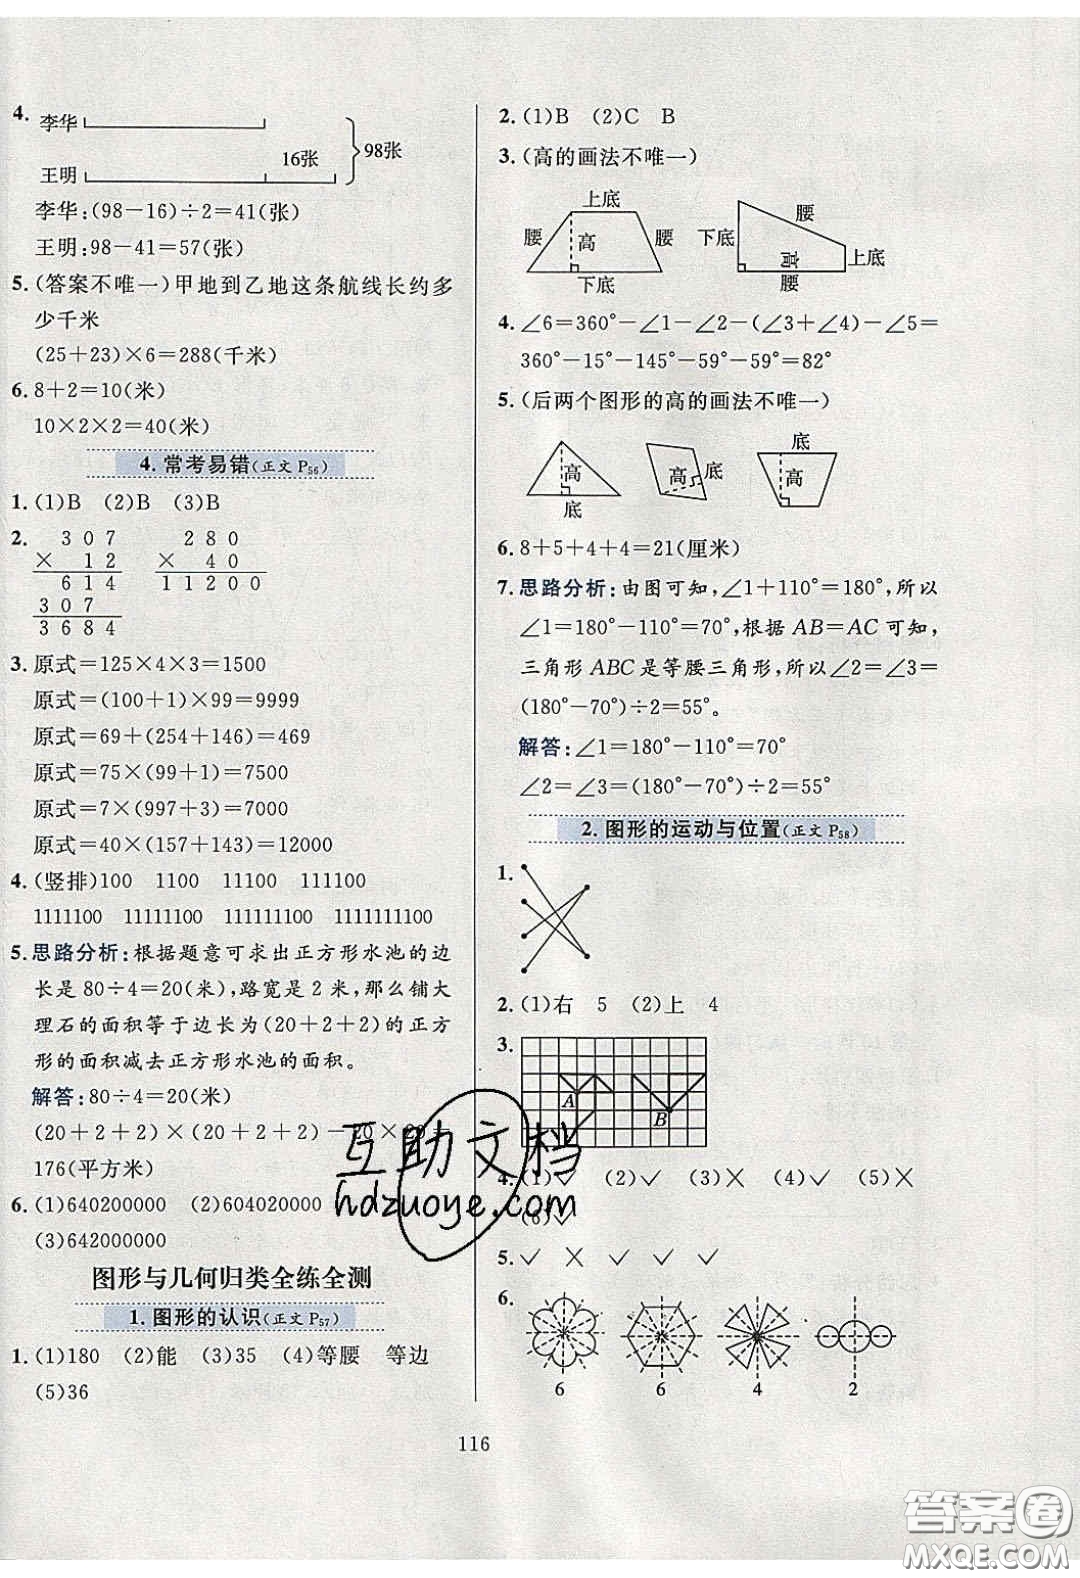 4.
李华
16张
98张
王明
李华:(98－16)÷2＝41(张)
王明:98－41＝57(张)
5.(答案不唯一)甲地到乙地这条航线长约多
少千米
(25＋23)×6＝288(千米)
6. 8＋2＝10(米)
10×2×2＝40(米)
4. 常考易错(正文 P56)
1. (1)B (2)B (3)B
2. 307 280
× 12 × 40
614 11200
307
3684
3. 原式＝125×4×3＝1500
原式＝(100＋1)×99＝9999
原式＝69＋(254＋146)＝469
原式＝75×(99＋1)＝7500
原式＝7×(997＋3)＝7000
原式＝40×(157＋143)＝12000
4. (竖排)100 1100 11100 111100
1111100 11111100 111111100
5. 思路分析:根据题意可求出正方形水池的边
长是 80÷4＝20(米),路宽是 2 米,那么铺大
理石的面积等于边长为(20＋2＋2)的正方
形的面积减去正方形水池的面积。
解答:80÷4＝20(米)
(20＋2＋2)×(20＋2＋2)－20×20＝
176(平方米)
6. (1)640200000 (2)604020000
(3)642000000
图形与几何归类全练全测
1. 图形的认识(正文 P57)
1. (1)180 (2)能 (3)35 (4)等腰 等边
(5)36
2. (1)B (2)C B
3. (高的画法不唯一)
上底
腰 高 腰
下底
腰
下底 上底
高
腰
4. ∠6＝360°－∠1－∠2－(∠3＋∠4)－∠5＝
360°－15°－145°－59°－59°＝82°
5. (后两个图形的高的画法不唯一)
高
底
高 底
底
高
6. 8＋5＋4＋4＝21(厘米)
7. 思路分析:由图可知,∠1＋110°＝180°,所以
∠1＝180°－110°＝70°,根据 AB＝AC 可知,
三角形 ABC 是等腰三角形,所以∠2＝∠3＝
(180°－70°)÷2＝55°。
解答:∠1＝180°－110°＝70°
∠2＝∠3＝(180°－70°)÷2＝55°
2. 图形的运动与位置(正文 P58)
1.
2. (1)右 5 (2)上 4
3.
A B
4. (1)✓ (2)✓ (3)✕ (4)✕ (5)✕
(6)✓
5. ✓ ✕ ✓ ✓ ✓
6.
6 6 4 2
116
互助文档
hdzuoye.com
答案圈
MXQE.COM